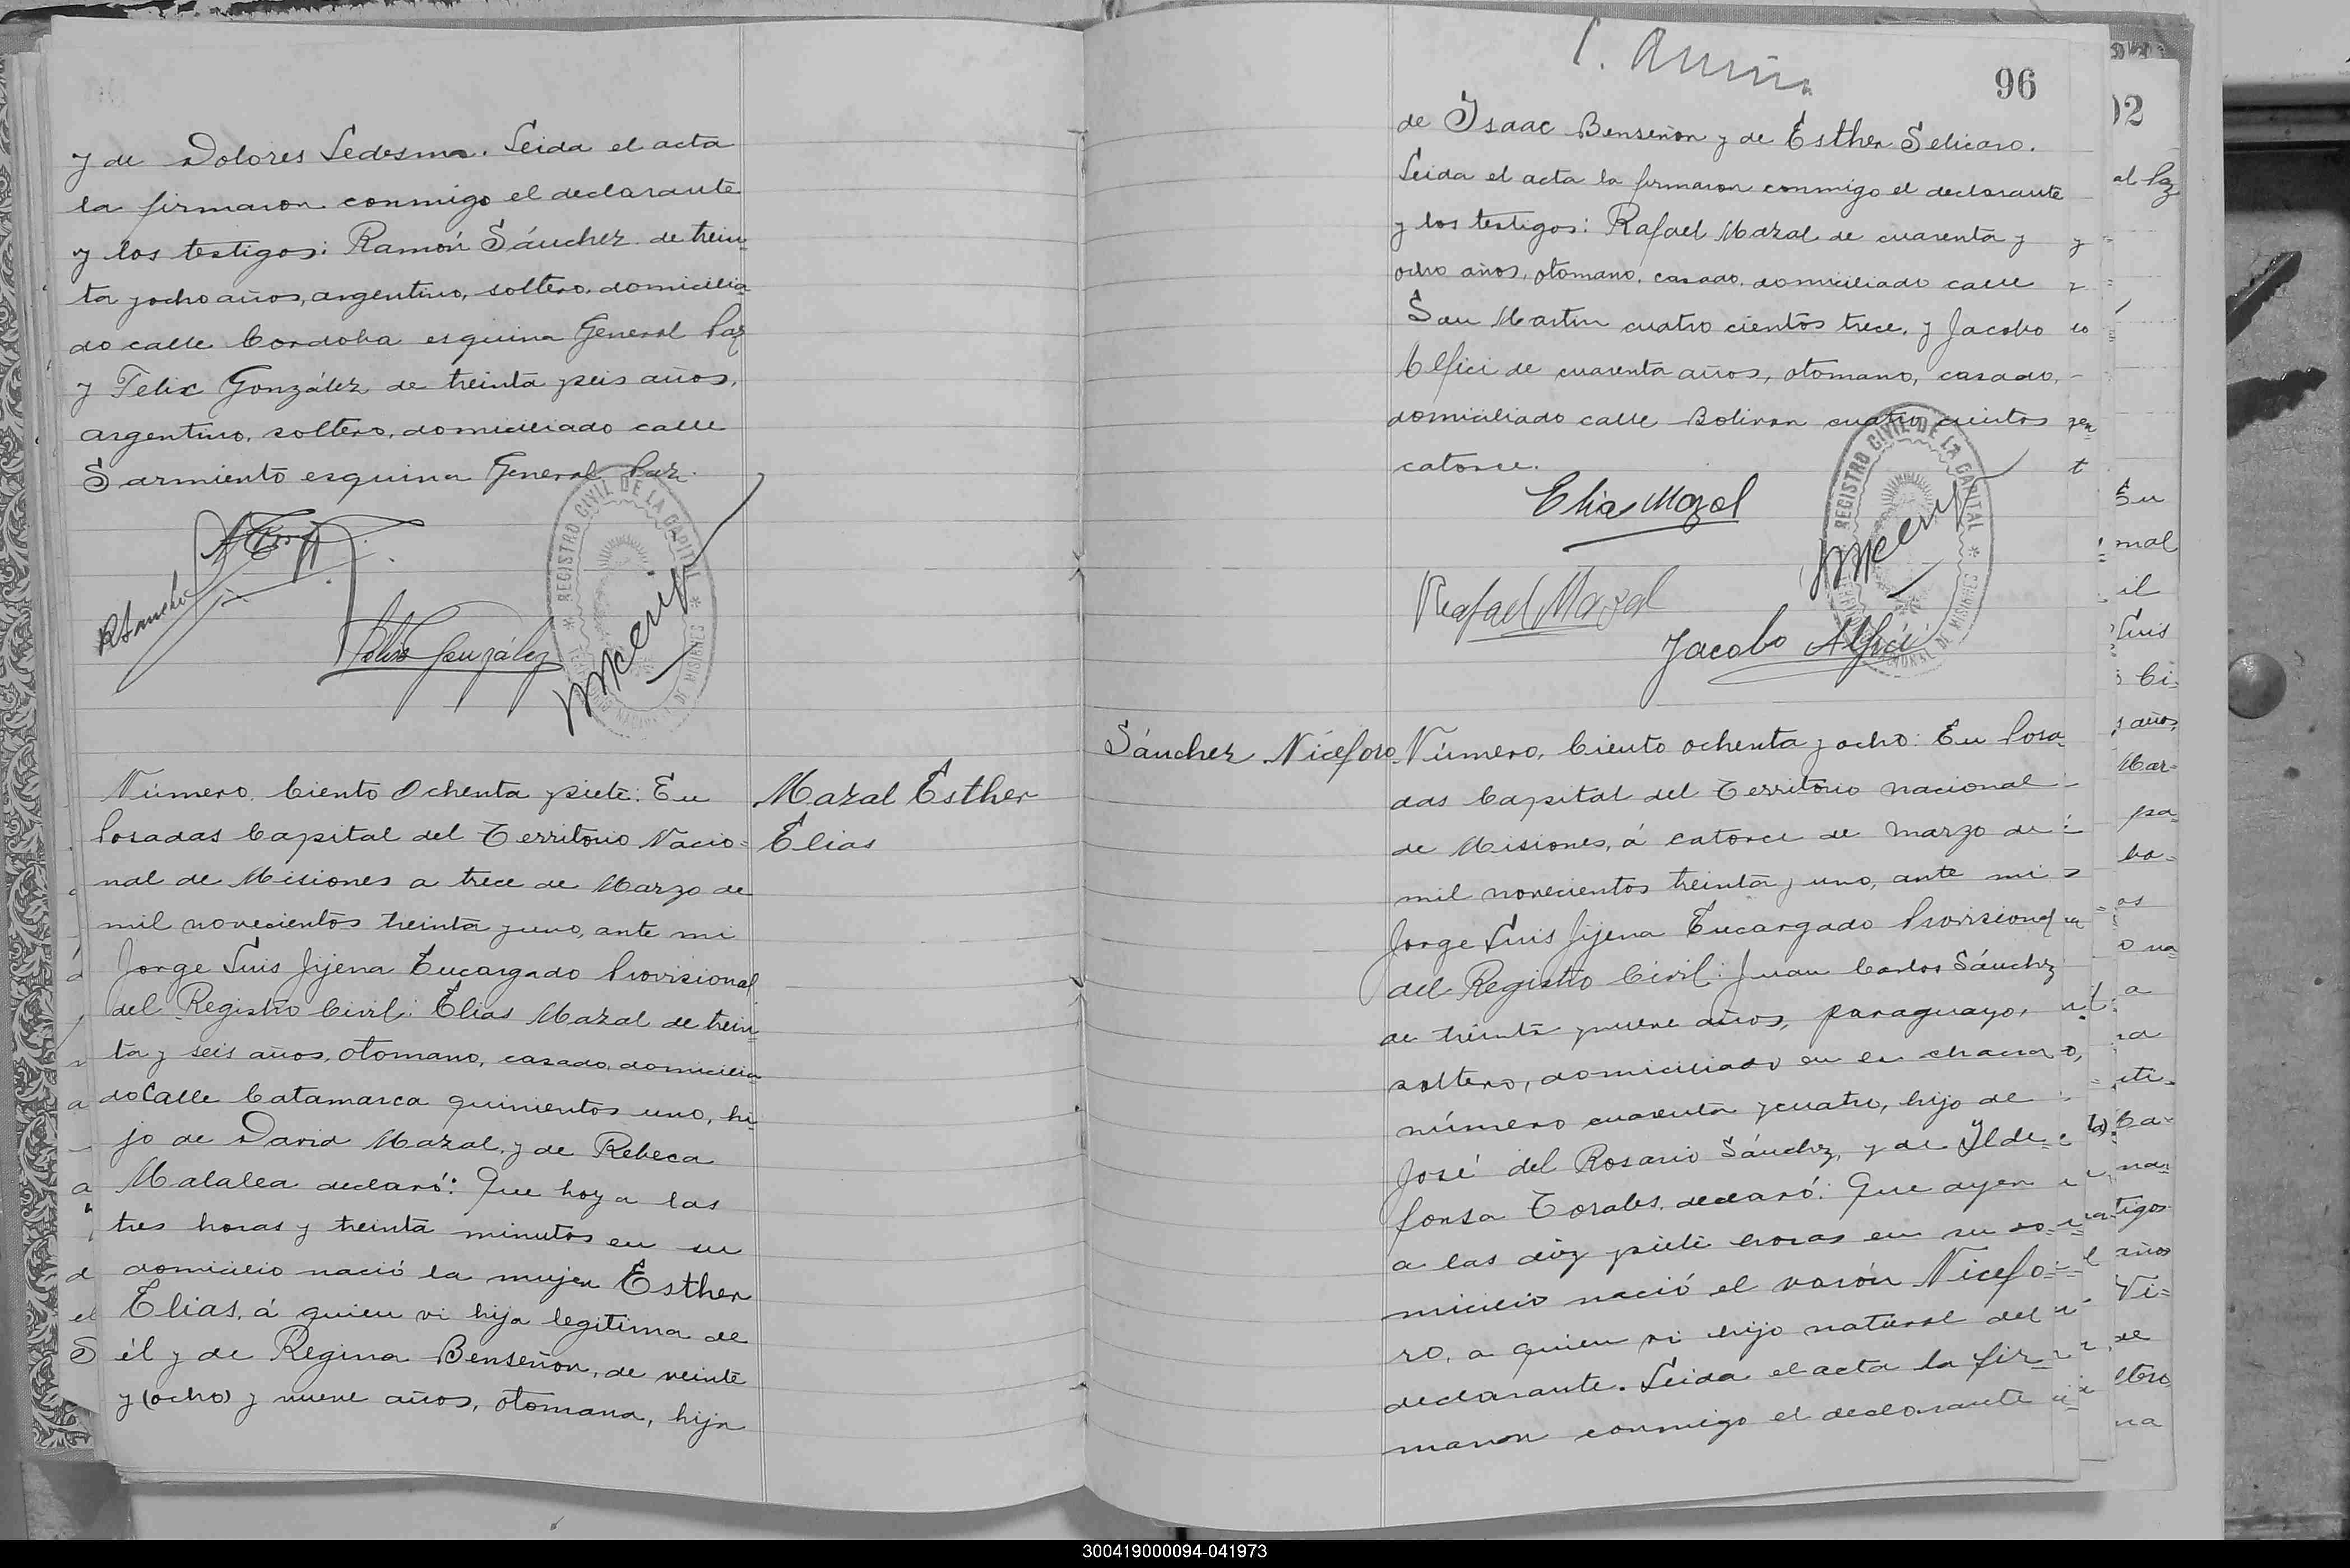 y de Dolores Ledesma. Leida el acta
la firmaron conmigo el declarante
y los testigos: Ramón Sánchez de trein=
ta y ocho años, argentino, soltero, domicilia
do calle Cordoba esquina General Paz
y Felix González de treinta y seis años,
argentino, soltero, domiciliado calle
Sarmiento esquina General Paz.
REGISTRO CIVIL DE LA CAPITAL
NACIONAL DE MISIONES
Felix González
Número. Ciento Ochenta y siete: En
Posadas Capital del Territorio Nacio=
nal de Misiones a trece de Marzo de
mil novecientos treinta y uno, ante mi
Jorge Luis Jijena Encargado Provisional
del Registro Civil: Elias Mazal de trein
ta y seis años, otomano, casado, domicilia
do Calle Catamarca quinientos uno, hi=
jo de David Mazal y de Rebeca
Malalea declaró: Que hoy a las
tres horas y treinta minutos en su
domicilio nació la mujer Esther
Elias, á quien vi hija legitima de
él y de Regina Benseñor, de veinte
y (ocho) y nueve años, otomana, hija
Mazal Esther
Elias
96
de Isaac Benseñon y de Esther Selicaro.
Leida el acta la firmaron conmigo el declarante
y los testigos: Rafael Mazal de cuarenta y
ocho años, otomano, casado, domiciliado calle
San Martin cuatro cientos trece, y Jacobo
Alfici de cuarenta años, otomano, casado,
domiciliado calle Bolivar cuatro cientos
catorce.
Elia Mazal
Rafael Mazal
Jacobo Alfici
REGISTRO CIVIL DE LA CAPITAL
NACIONAL DE MISIONES
Sánchez Niceforo
Número. Ciento ochenta y ocho: En Posa
das Capital del Territorio nacional
de Misiones, á catorce de Marzo de
mil novecientos treinta y uno, ante mi
Jorge Luis Jijena Encargado Provisional
del Registro Civil: Juan Carlos Sánchez
de treinta y nueve años, paraguayo,
soltero, domiciliado en la chacra
número cuarenta y cuatro, hijo de
José del Rosario Sánchez, y de Ilde=
fonsa Torales, declaró: Que ayer
a las diez y siete horas en su do=
micilio nació el varón Nicefo=
ro, a quien vi hijo natural del
declarante. Leida el acta la fir=
maron conmigo el declarante
300419000094-041973